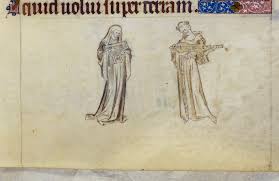 quid volui super terram.